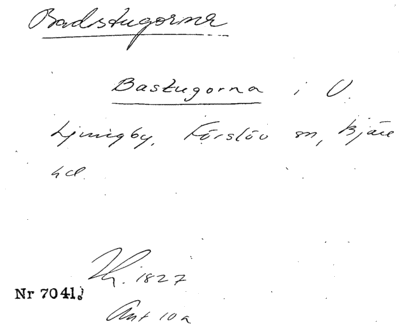 Badstugorna
Bastugorna i V.
Ljungby, Förslöv sn, Bjäre
hd
Lh. 1827
Nr 7041.
Akt 10a